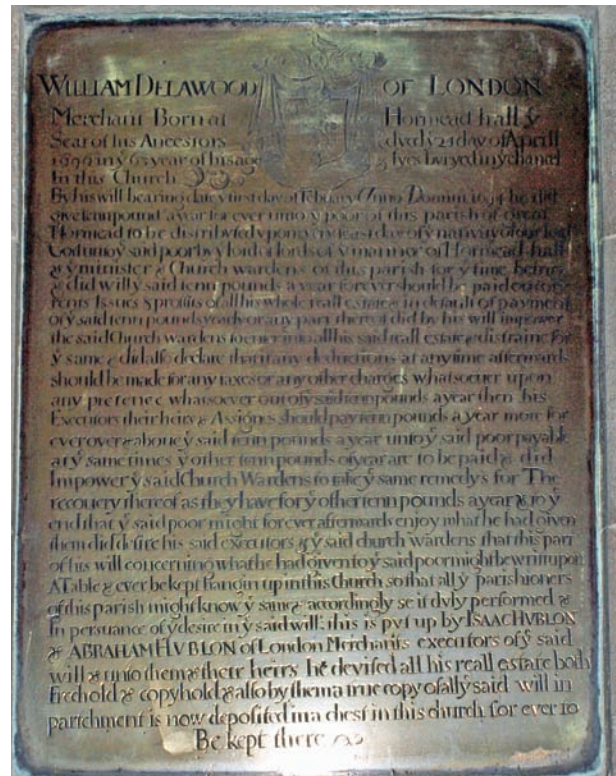 WILLIAM DELAWOOD OF LONDON
Merchant Born at Hormead hall ẙ
Seat of his Ancestors dyed ẙ 24 day of Aprill
in ẙ 63 year of his age & lyes buryed in ẙ chancel
In this Church
By his will bearing date ẙ first day of february Anno Domini he did
give tenn pound a year for ever unto ẙ poor of this parish of Great
Hormead to be distributed upon every feast day of ẙ nativity of our lord
God unto ẙ said poor by ẙ lord or lords of ẙ mannor of Hormead hall
& ẙ minister & Church wardens of this parish for ẙ time being
& did will ẙ said tenn pounds a year for ever should be paid out of ẙ
rents Issues & profits of all his whole reall estate & in default of payment
of ẙ said tenn pounds yearly or any part thereof did by his will impower
the said Church wardens to enter into all his said reall estate & distraine for
ẙ same & did also declare that if any deductions at any time afterwards
should be made for any taxes or any other charges whatsoever upon
any pretence whatsoever out of ẙ said tenn pounds a year then his
Executors their heirs & Assignes should pay tenn pounds a year more for
ever over & above ẙ said tenn pounds a year unto ẙ said poor payable
at ẙ same times ẙ other tenn pounds a year are to be paid & did
Impower ẙ said Church Wardens to take ẙ same remedys for The
recovery thereof as they have for ẙ other tenn pounds a year & to ẙ
end that ẙ said poor might for ever afterwards enjoy what he had given
them did desire his said executors & ẙ said church wardens that this part
of his will concerning what he had given to ẙ said poor might be writt upon
A Table & ever be kept hangin up in this Church so that all ẙ parishioners
of this parish might know ẙ same & accordingly se it dvly performed &
In persuance of ẙ desire in ẙ said will this is pvt up by ISAAC HVBLON
& ABRAHAM HVBLON of London Merchants executors of ẙ said
will & unto them & there heirs he devised all his reall estate both
freehold & copyhold & also by them a true copy of all ẙ said will in
partchment is now deposited in a chest in this church for ever to
Be kept there